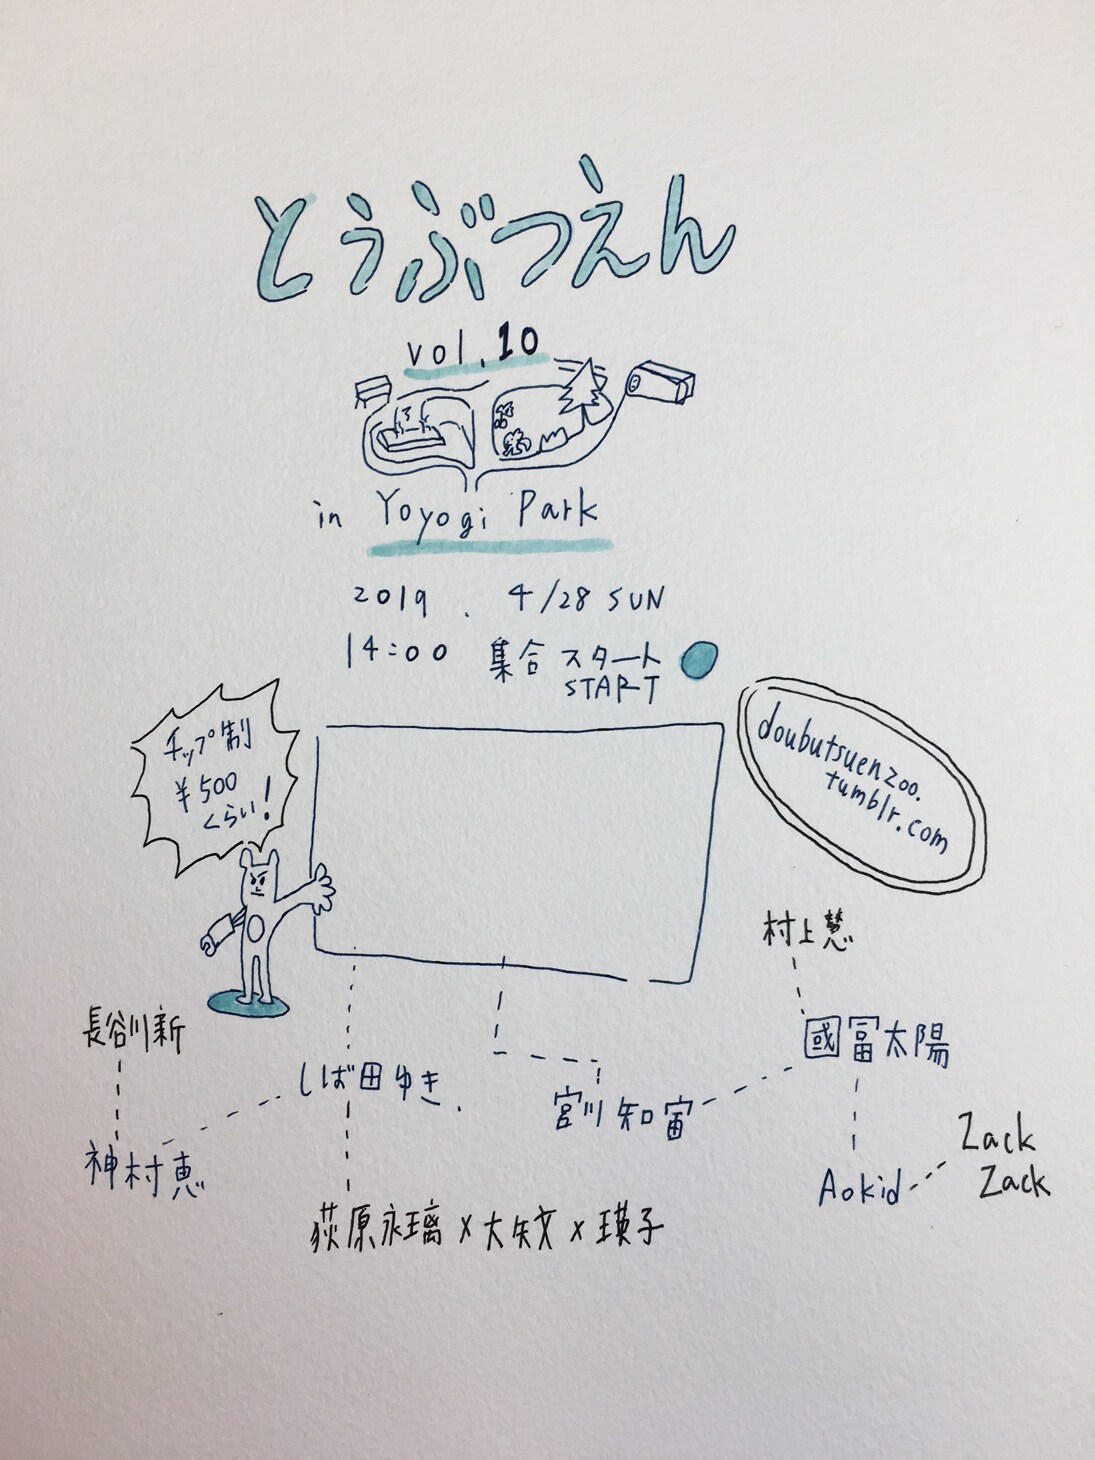 とうぶつえん
vol.10
in Yoyogi Park
2019 . 4/28 SUN
14:00 集合 スタート
START
チップ制
¥500
くらい!
doubutsuenzoo.
tumblr.com
村上慧
長谷川新
國冨太陽
しば田ゆき.
宮川知宙
神村恵
Aokid
Zack
Zack
荻原永璃×大矢文×瑛子